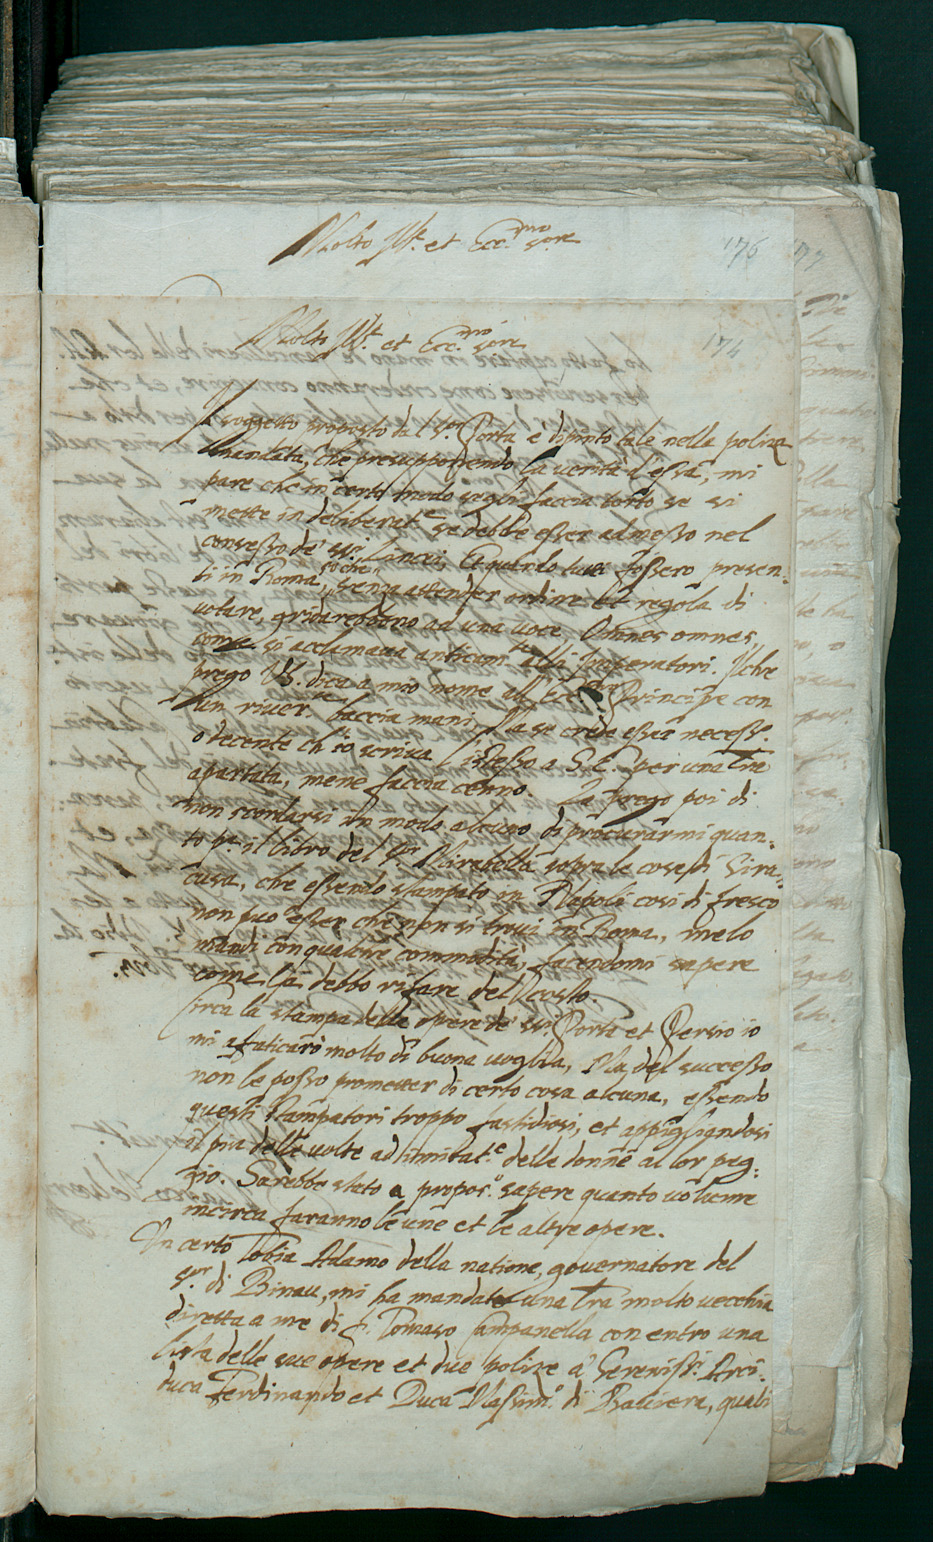 Molto Ill.e et Ecc.mo sore
176
177
Molto Ill.e et Ecc.mo sore
174
Il soggetto proposto dal S.or Porta e dipinto tale nelle polize
mandate, che presupponendo la verità d'essa, mi
pare che in certo modo segli faccia torto se si
mette in deliberat.e se debbe esser admesso nel
consesso de' ss.ri Lincei, Et quando tutti fossero presen-
ti in Roma, so che, senza attender ordine et regola di
votare, gridarebbono ad una voce Omnes omnes,
come si acclamava anticam.te alli Imperatori. Il che
prego VS. dica a mio nome all' Ecc.mo Principe con
un river. baccia mani, Ma se crede esser necess.
o decente ch'io scriva l'istesso a S.E. per una lra
apartata, mene faccia cenno. La prego poi di
non scordarsi in modo alcuno di procurarmi quan-
to p.a il libro del S.r Mirabella sopra le cose di Sira-
cusa, che essendo stampato in Napoli cosi di fresco
non puo esser che non si trovi in Roma, melo
mandi con qualche commodità, facendomi sapere
come la debbo rifare del costo.
Circa la stampa delle opere de' ss.ri Porta et Persio io
mi afaticarò molto di buona voglia, Ma del successo
non le posso prometter di certo cosa alcuna, essendo
questi stampatori troppo fastidiosi, et appigliandosi
il piu delle volte ad imitat.e delle donne al lor peg-
gio. Sarebbe stato a propos.o sapere quanto volume
incirca faranno le une et le altre opere.
Un certo Tobia Adamo della natione, governatore del
S.r di Binau, mi ha mandato una lra molto vecchia
diretta a me di f. Tomaso Campanella con entro una
lista delle sue opere et due polize a' Sereniss.i Arci-
duca Ferdinando et Duca Massim.o di Baviera, quali